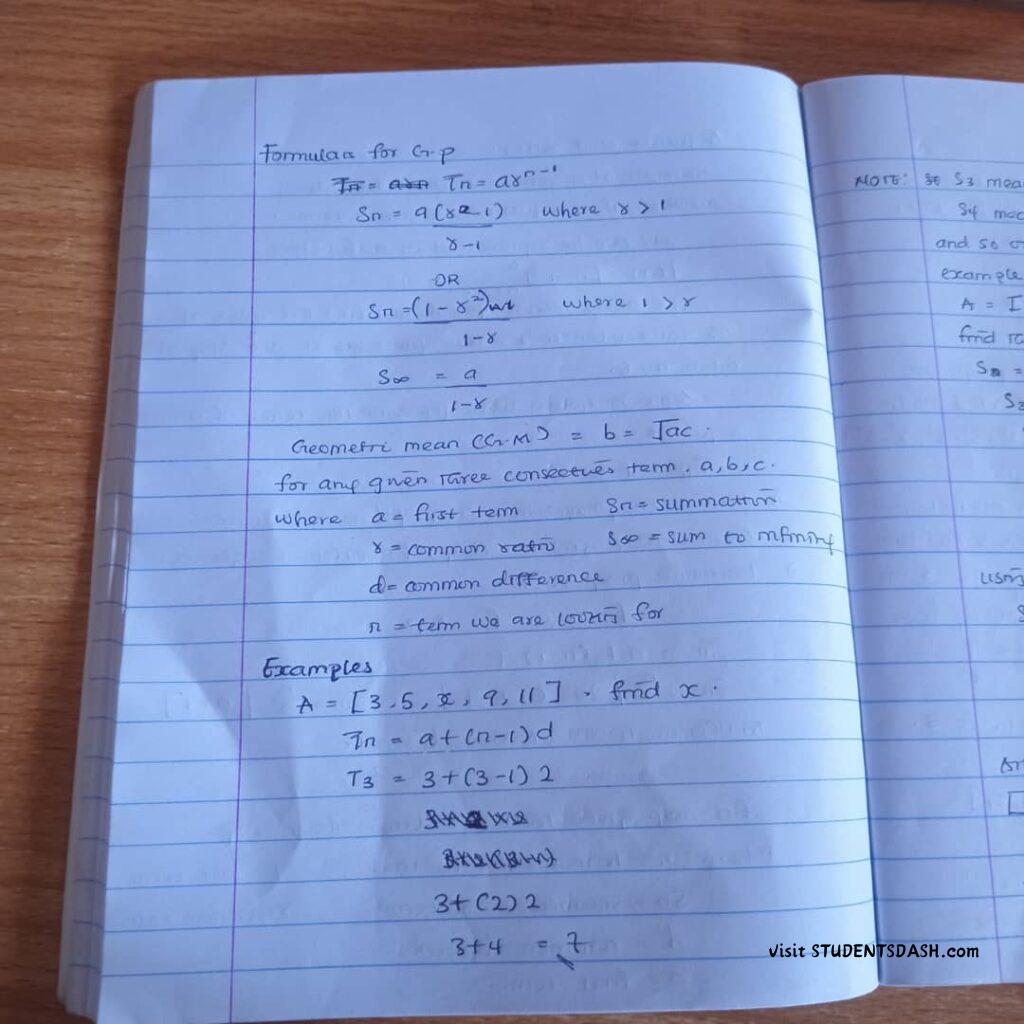 Formulars for G.p
Tn = arn Tn = arⁿ⁻¹
Sn = a(r² - 1) where r > 1
r - 1
OR
Sn = (1 - r²) where 1 > r
1 - r
S∞ = a
1 - r
Geometri mean (G.M) = b = √ac.
for any given Three consectues term. a, b, c.
where a = first term Sn = summation
r = common ratio S∞ = sum to infininty
d = common difference
n = term we are lookin for
Examples
A = [3, 5, x, 9, 11]. find x.
Tn = a + (n-1)d
T3 = 3 + (3-1) 2
3 + (2) 2
3 + 4 = 7
NOTE: S3 mea
S4 mea
and so o
example
A = [
find
S =
S
usin
S
visit STUDENTSDASH.com